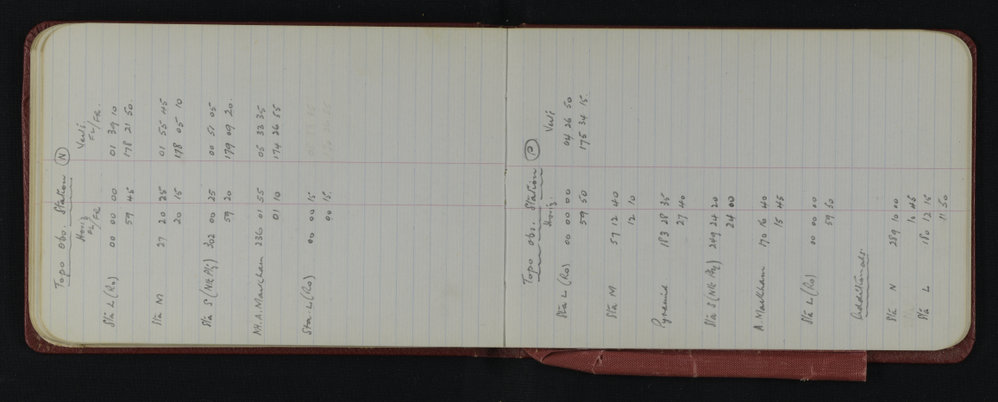 Topo Obs. Station (N)
Horiz Verti
FL/FR FL/FR.
Sta L (Ro) 00 00 00 01 39 10
59 45 178 21 50.
Sta M 27 20 25 01 55 45
20 15 178 05 10
Sta S (Nk Pkg) 302 00 25 00 51 05
59 20 179 09 20.
Mt. A. Markham 236 01 55 05 33 35
01 10 174 26 55
Sta L (Ro) 00 00 15
00 15
Topo Obs. Station (P)
Horiz Verti
Sta L (Ro) 00 00 00 04 26 50
59 50 175 34 15.
Sta M 57 12 40
12 10
Pyramid 183 28 35
27 40
Sta S (Nk Pkg) 249 24 20
24 00
A. Markham 170 16 40
15 45
Sta L (Ro) 00 00 00
59 50
Additional:
Sta N 289 10 00
10 45
Sta L 180 12 15
11 50